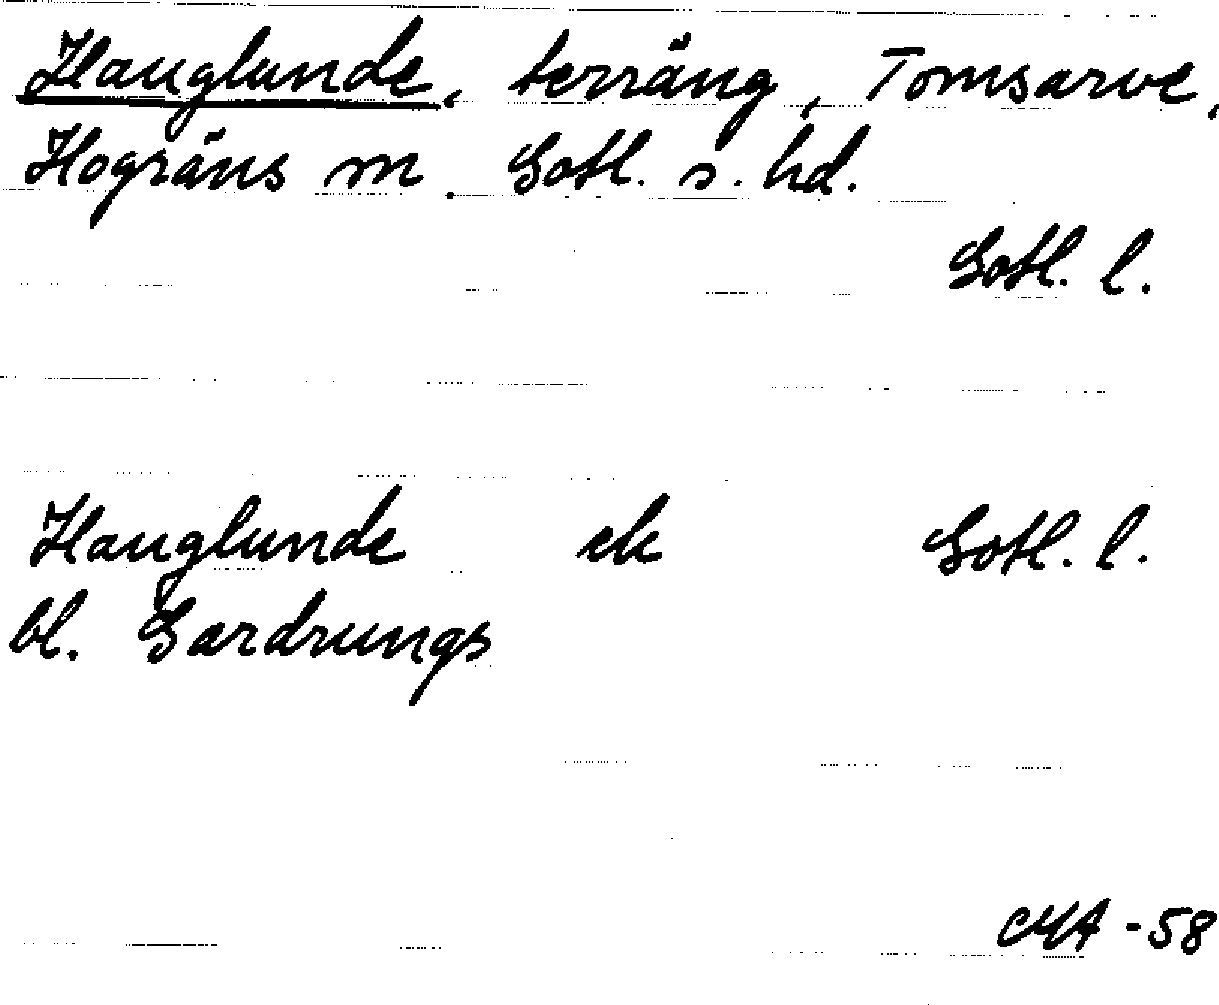 Hauglunde, terräng, Tomsarve,
Hogräns sn. Gotl. s. hd.
Gotl. l.
Hauglunde ek Gotl. l.
bl. Gardrungs
CMA -58